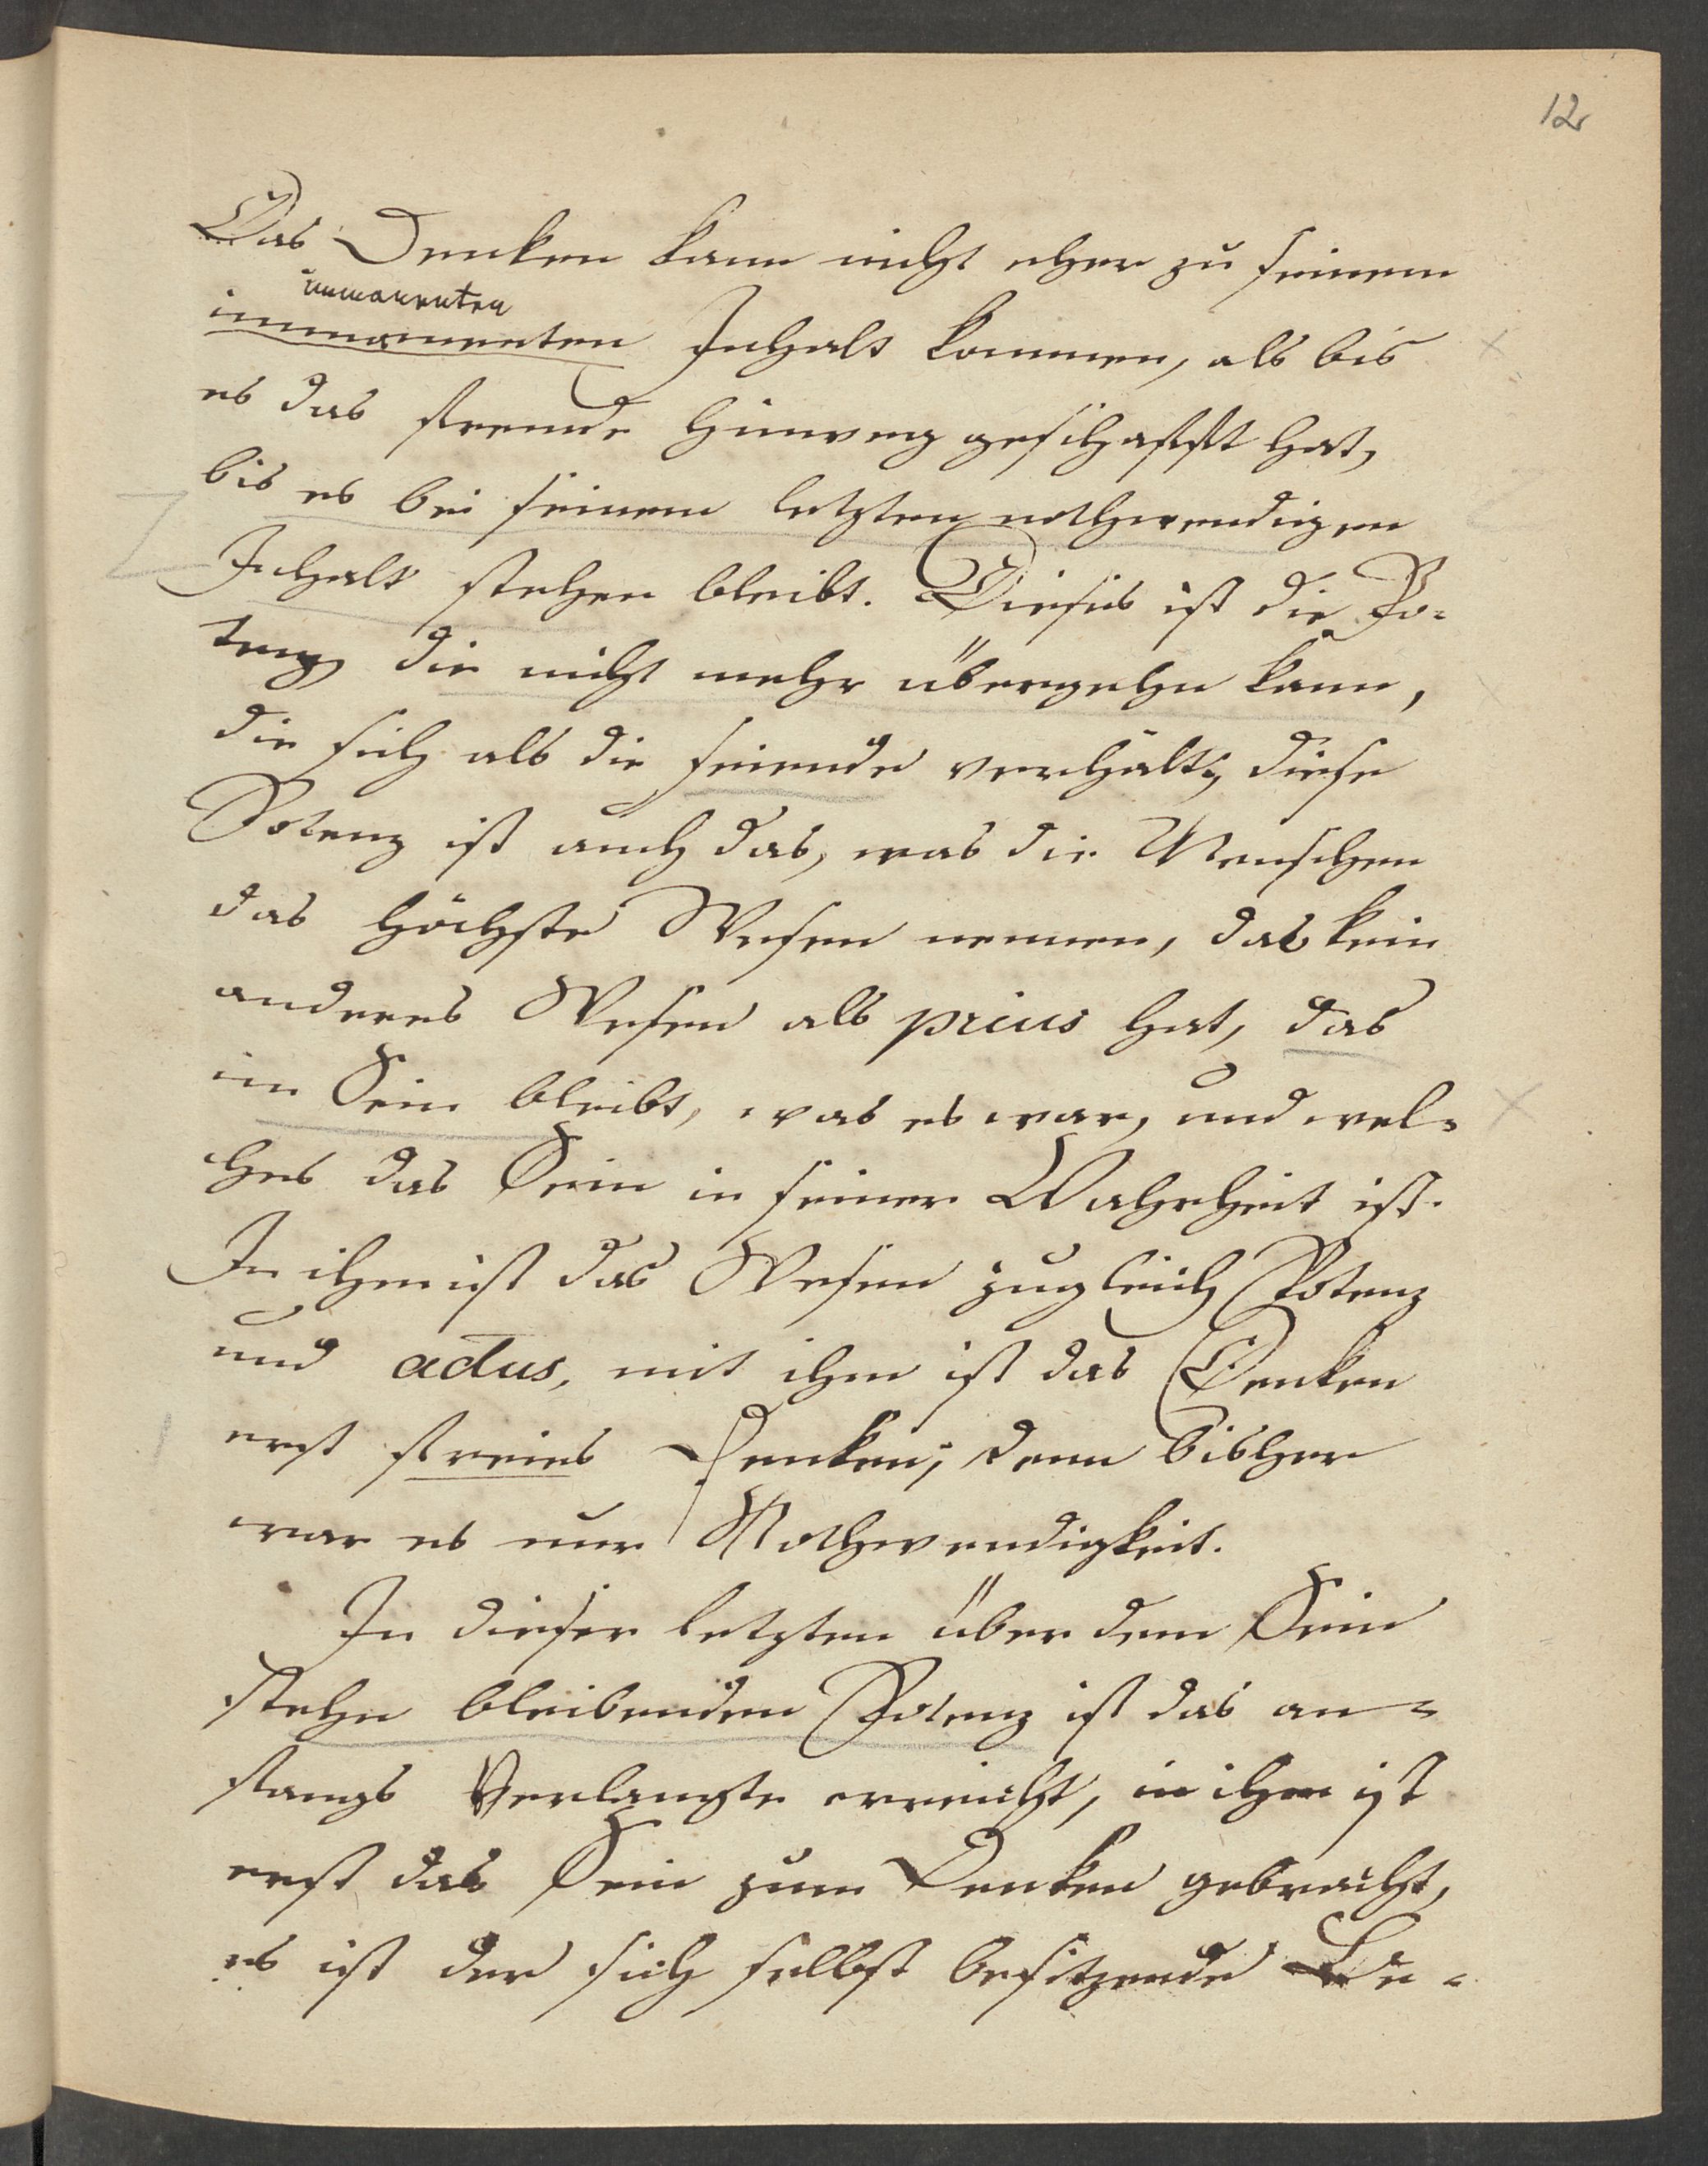 12
Das Denken kann nicht eher zu seinem
immanenten
immomenten Inhalt kommen, als bis
es das fremde hinweg geschafft hat,
bis es bei seinem letzten nothwendigen
Inhalt stehen bleibt. Dieses ist die Po-
tenz die nicht mehr übergehn kann,
die sich als die seiende verhält, diese
Potenz ist auch das, was die Menschen
das höchste Wesen nennen, das kein
anderes Wesen als prius hat, das
im Sein bleibt, was es war, und wel-
ches das Sein in seiner Wahrheit ist.
In ihm ist das Wesen zugleich Potenz
und actus, mit ihm ist das Denken
erst freies Denken; denn bisher
war es nur Nothwendigkeit.
In dieser letzten über dem Sein
stehn bleibenden Potenz ist das an-
fangs Verlangte erreicht, in ihm ist
erst das Sein zum Denken gebracht,
es ist der sich selbst besitzende Be-